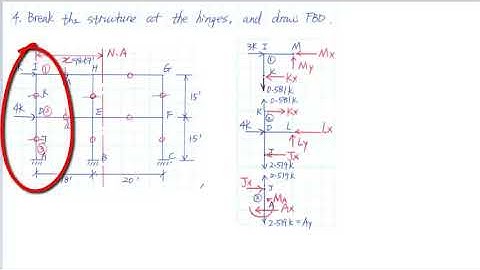 4. Break the structure at the hinges, and draw FBD.
N.A
3K I M Mx
I ① H G
① My
K Kx
0.581K
0.581K
K D② 15'
K Kx
②
4K E F
4K D L Lx
Ly
J 15'
J Jx
2.519K
③ B C
2.519K
Jx J
③ MA
18' 20'
A Ax
2.519K = Ay